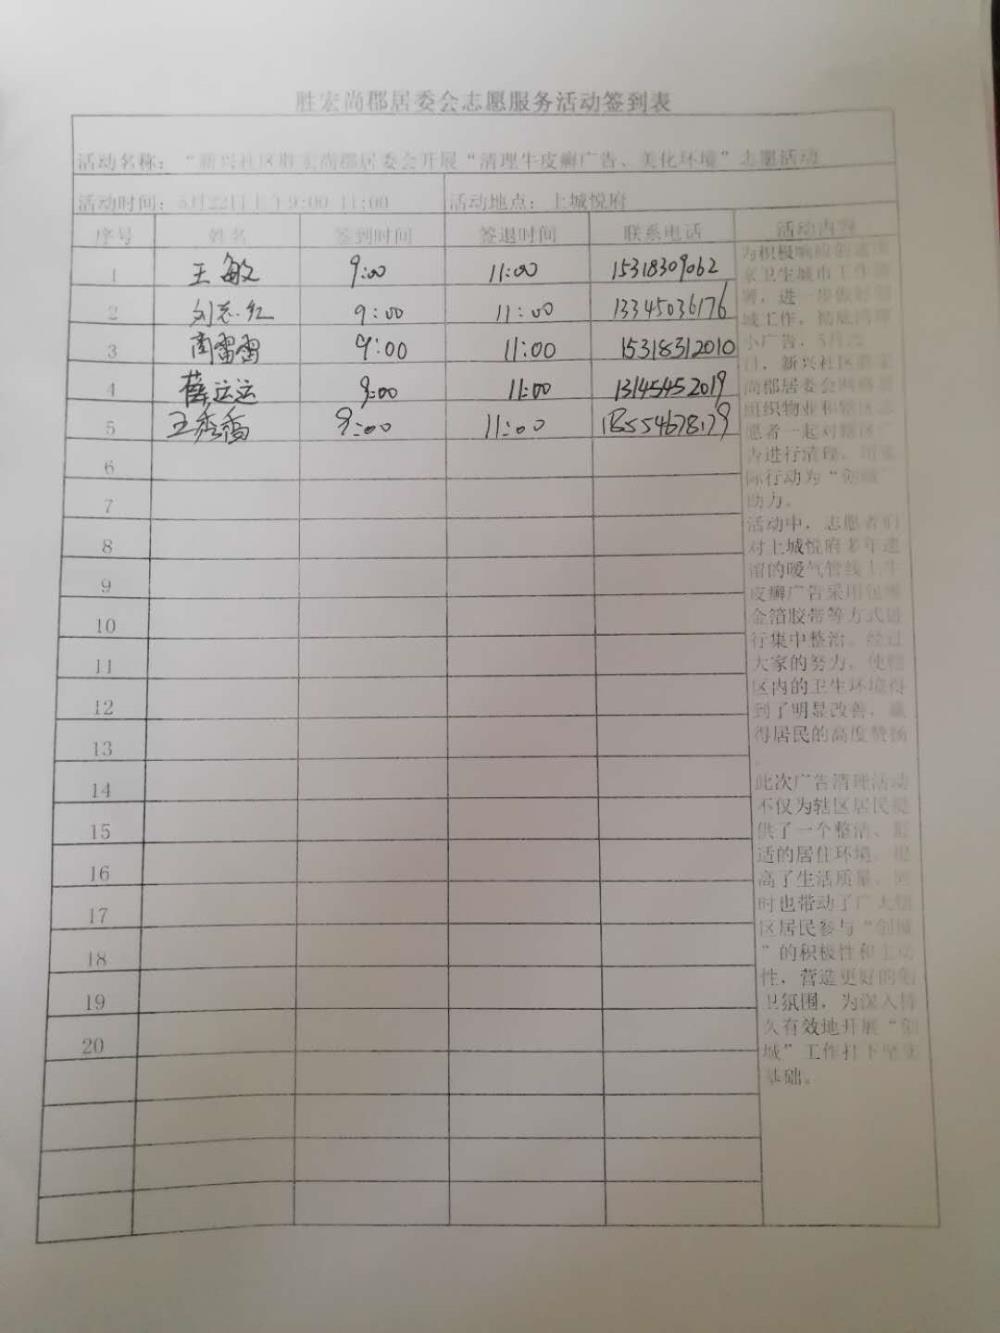 胜宏尚郡居委会志愿服务活动签到表
活动名称：“新兴社区胜宏尚郡居委会开展“清理牛皮癣广告、美化环境”志愿活动
活动时间：5月22日上午9:00-11:00 活动地点：上城悦府
序号 姓名 签到时间 签退时间 联系电话 活动内容
1 王敏 9:00 11:00 15318309062
2 刘志红 9:00 11:00 13345036176
3 商雷雷 9:00 11:00 15318312010
4 薛运运 9:00 11:00 13145452019
5 王秀香 9:00 11:00 18554678179
6
7
8
9
10
11
12
13
14
15
16
17
18
19
20
为积极响应创建国
家卫生城市工作部
署，进一步做好创
城工作，彻底清理
小广告，5月22
日，新兴社区胜宏
尚郡居委会
组织物业和辖区志
愿者一起对辖区广
告进行清理，用实
际行动为“创城”
助力。
活动中，志愿者们
对上城悦府多年遗
留的暖气管线上牛
皮癣广告采用包裹
金箔胶带等方式进
行集中整治。经过
大家的努力，使辖
区内的卫生环境得
到了明显改善，赢
得居民的高度赞扬
。
此次广告清理活动
不仅为辖区居民提
供了一个整洁、舒
适的居住环境，提
高了生活质量，同
时也带动了广大辖
区居民参与“创城
”的积极性和主动
性，营造更好的创
卫氛围，为深入持
久有效地开展“创
城”工作打下坚实
基础。